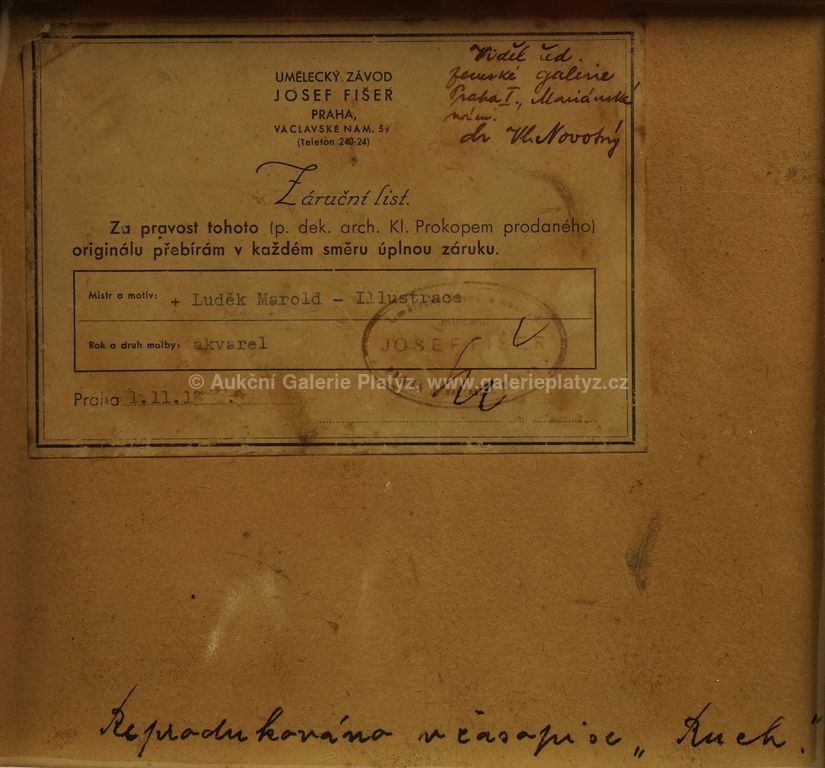 UMĚLECKÝ ZÁVOD
JOSEF FIŠER
PRAHA,
VÁCLAVSKÉ NÁM. 59
(Telefon 240-24)
Viděl řed.
zemské galerie
Praha I., Mariánské
nám.
dr Vl. Novotný
Záruční list.
Za pravost tohoto (p. dek. arch. Kl. Prokopem prodaného)
originálu přebírám v každém směru úplnou záruku.
Mistr a motiv: + Luděk Marold - Illustrace
Rok a druh malby: akvarel
JOSEF FIŠER
© Aukční Galerie Platýz, www.galerieplatyz.cz
Praha 1.11.19
Reprodukováno v časopise „Ruch."